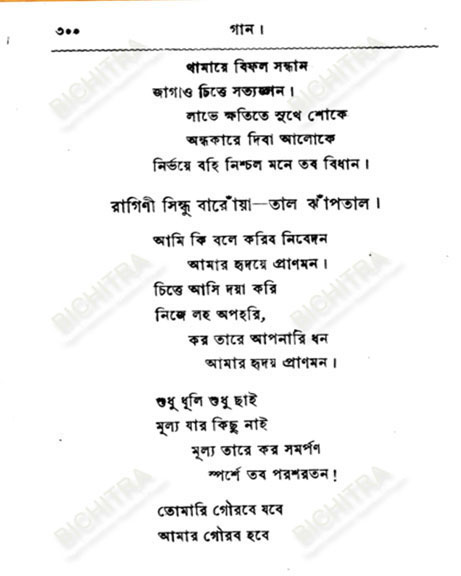 ৩০০ গান।
থামারে বিফল সন্ধান
জাগাও চিত্তে সত্যজ্ঞান।
লাভে ক্ষতিতে সুখে শোকে
অন্ধকারে দিবা আলোকে
নির্ভয়ে বহি নিশ্চল মনে তব বিধান।
রাগিণী সিন্ধু বারোঁয়া—তাল ঝাঁপতাল।
আমি কি বলে করিব নিবেদন
আমার হৃদয়ে প্রাণমন।
চিত্তে আসি দয়া করি
নিজে লহ অপহরি,
কর তারে আপনারি ধন
আমার হৃদয় প্রাণমন।
শুধু ধূলি শুধু ছাই
মূল্য যার কিছু নাই
মূল্য তারে কর সমর্পণ
স্পর্শে তব পরশরতন!
তোমারি গৌরবে যবে
আমার গৌরব হবে
BICHITRA
BICHITRA
BICHITRA
BICHITRA
BICHITRA
BICHITRA